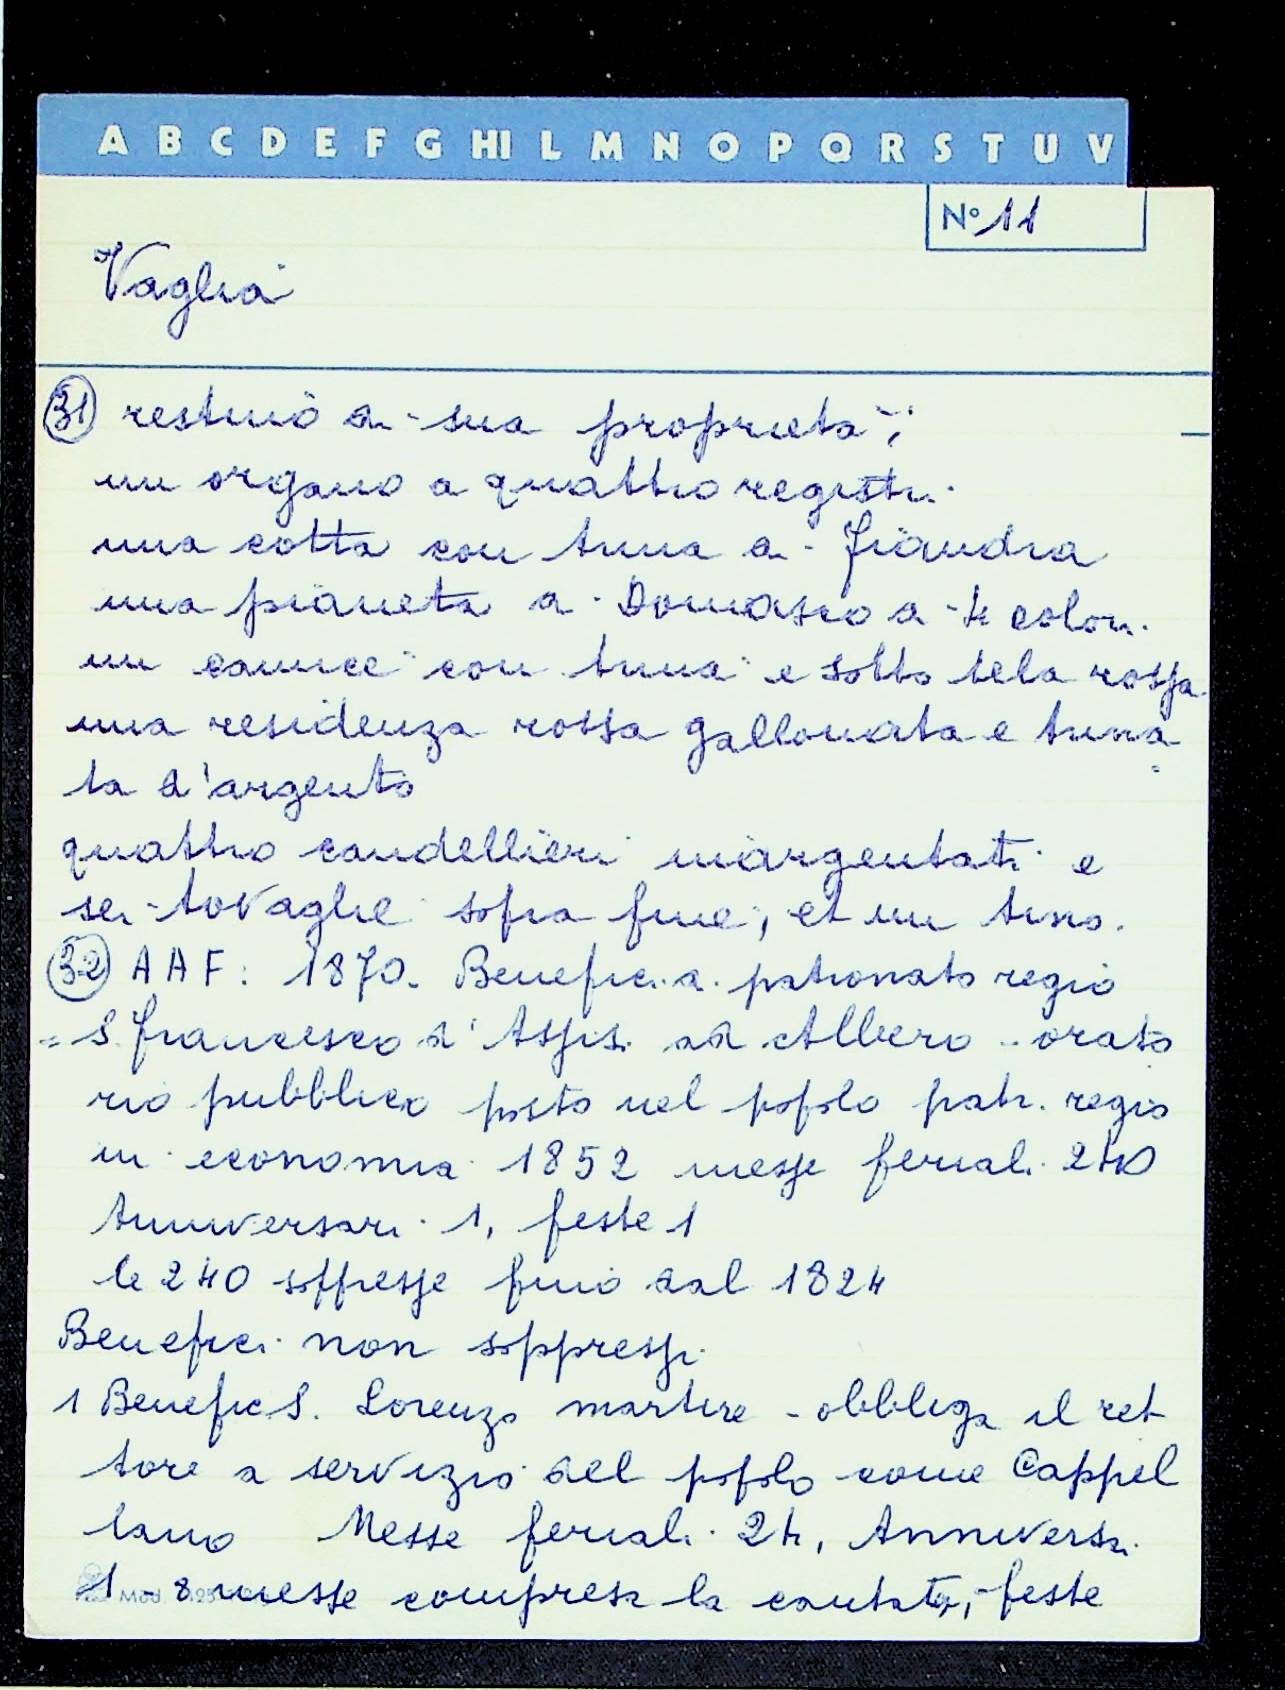 A B C D E F G HI L M N O P Q R S T U V
N° 11
Vaglia
31 restituì a sua proprietà;
un organo a quattro registri.
una cotta con trina a fiandra
una pianeta a Domasco a 4 colori.
un camice con trina e sotto tela rossa
una residenza rossa gallonata e trina
ta d'argento
quattro candellieri inargentati e
sei tovaglie sopra fine, et un
32 AAF: 1870. Benefici a patronato regio
= S. Francesco d'Assisi ad Albero - orato
rio pubblico posto nel popolo patr. regio
in economia 1852 messe feriali 240
Anniversari 1, feste 1
le 240 soppresse fino dal 1824
Benefici non soppressi
1 Benefic S. Lorenzo martire - obbliga il ret
tore a servizio del popolo come Cappel
lano Messe feriali 24, Anniversr.
1 - 8 messe compresa la cantata, feste